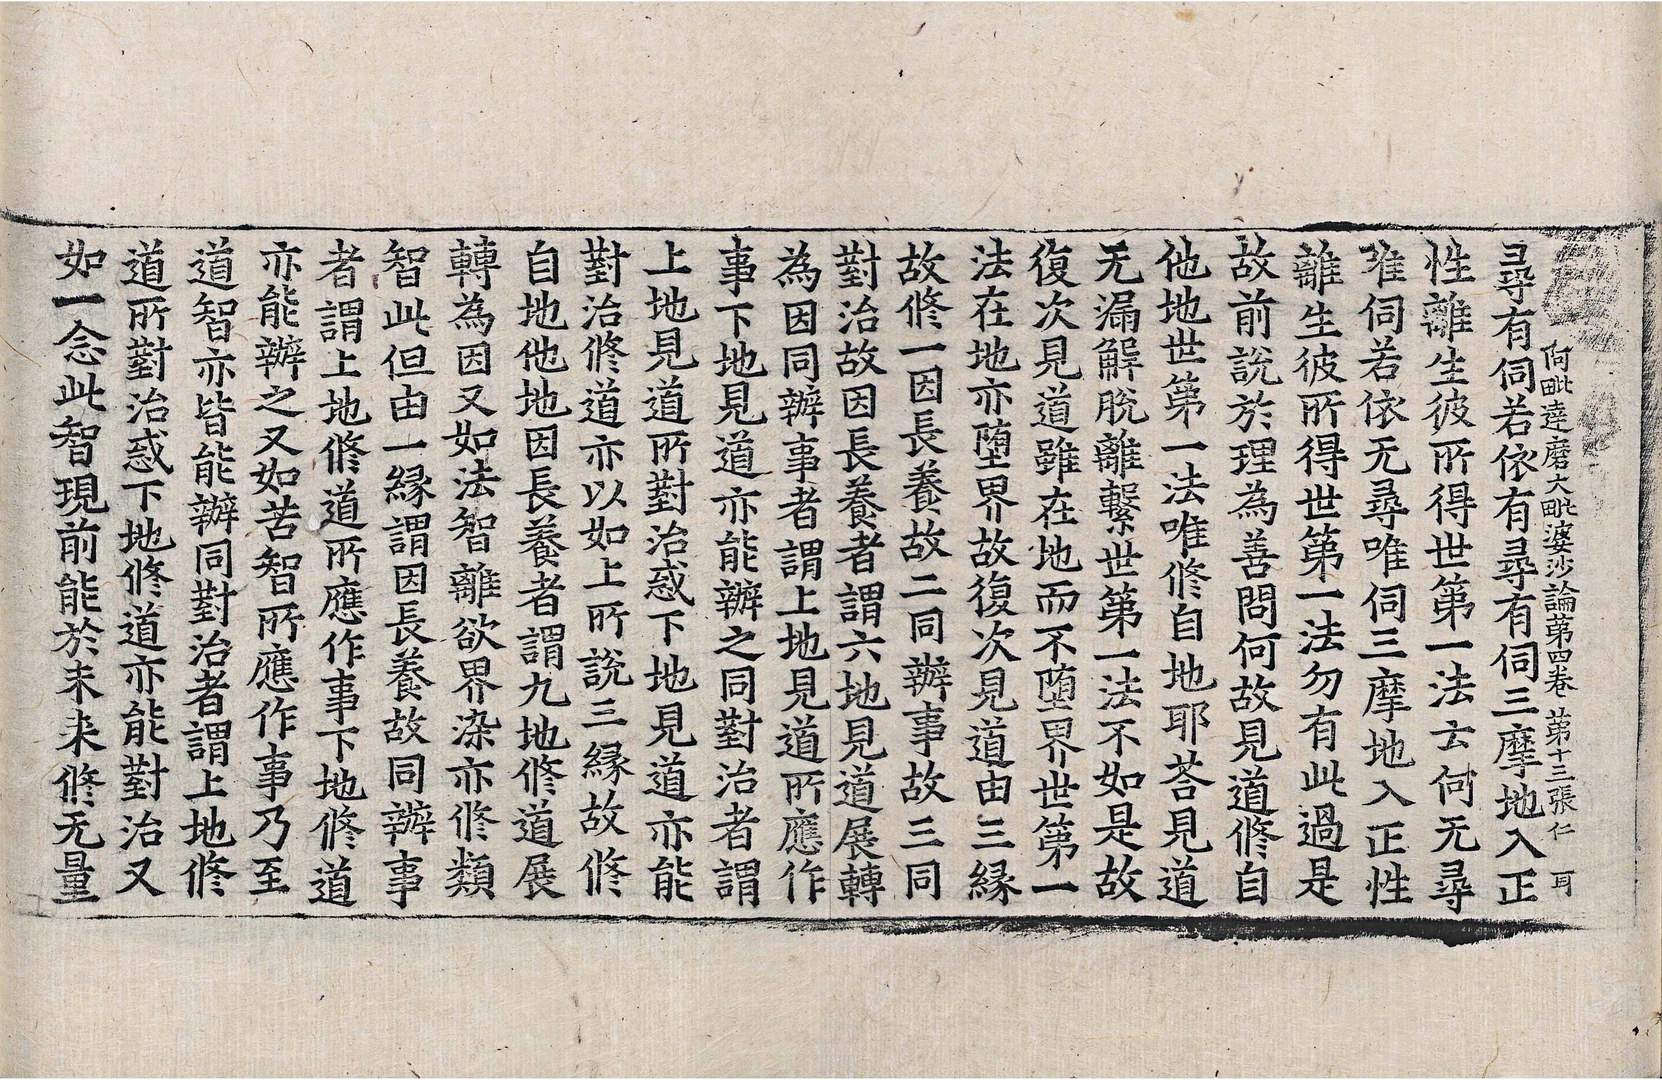 阿毗達磨大毗婆沙論第四卷 第十三張 仁
尋有伺若依有尋有伺三摩地入正
性離生彼所得世第一法云何无尋
唯伺若依无尋唯伺三摩地入正性
離生彼所得世第一法勿有此過是
故前說於理為善問何故見道修自
他地世第一法唯修自地耶荅見道
无漏解脫離繫世第一法不如是故
復次見道雖在地而不墮界世第一
法在地亦墮界故復次見道由三緣
故修一因長養故二同辦事故三同
對治故因長養者謂六地見道展轉
為因同辦事者謂上地見道所應作
事下地見道亦能辦之同對治者謂
上地見道所對治惑下地見道亦能
對治修道亦以如上所說三緣故修
自地他地因長養者謂九地修道展
轉為因又如法智離欲界染亦修類
智此但由一緣謂因長養故同辦事
者謂上地修道所應作事下地修道
亦能辦之又如苦智所應作事乃至
道智亦皆能辦同對治者謂上地修
道所對治惑下地修道亦能對治又
如一念此智現前能於未来修无量